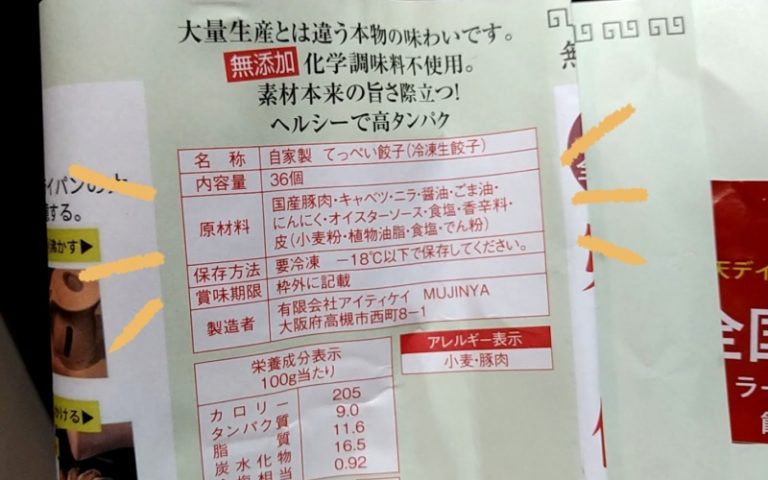 大量生産とは違う本物の味わいです。
無添加 化学調味料不使用。
素材本来の旨さ際立つ!
ヘルシーで高タンパク
名称 自家製 てっぺい餃子(冷凍生餃子)
内容量 36個
原材料 国産豚肉・キャベツ・ニラ・醤油・ごま油・
にんにく・オイスターソース・食塩・香辛料・
皮(小麦粉・植物油脂・食塩・でん粉)
保存方法 要冷凍 −18℃以下で保存してください。
賞味期限 枠外に記載
製造者 有限会社アイティケイ MUJINYA
大阪府高槻市西町8−1
アレルギー表示
小麦・豚肉
栄養成分表示
100g当たり
カロリー 205
タンパク質 9.0
脂質 11.6
炭水化物 16.5
0.92
する。
沸かす▶
ける▶
天デイ
全国
ラー